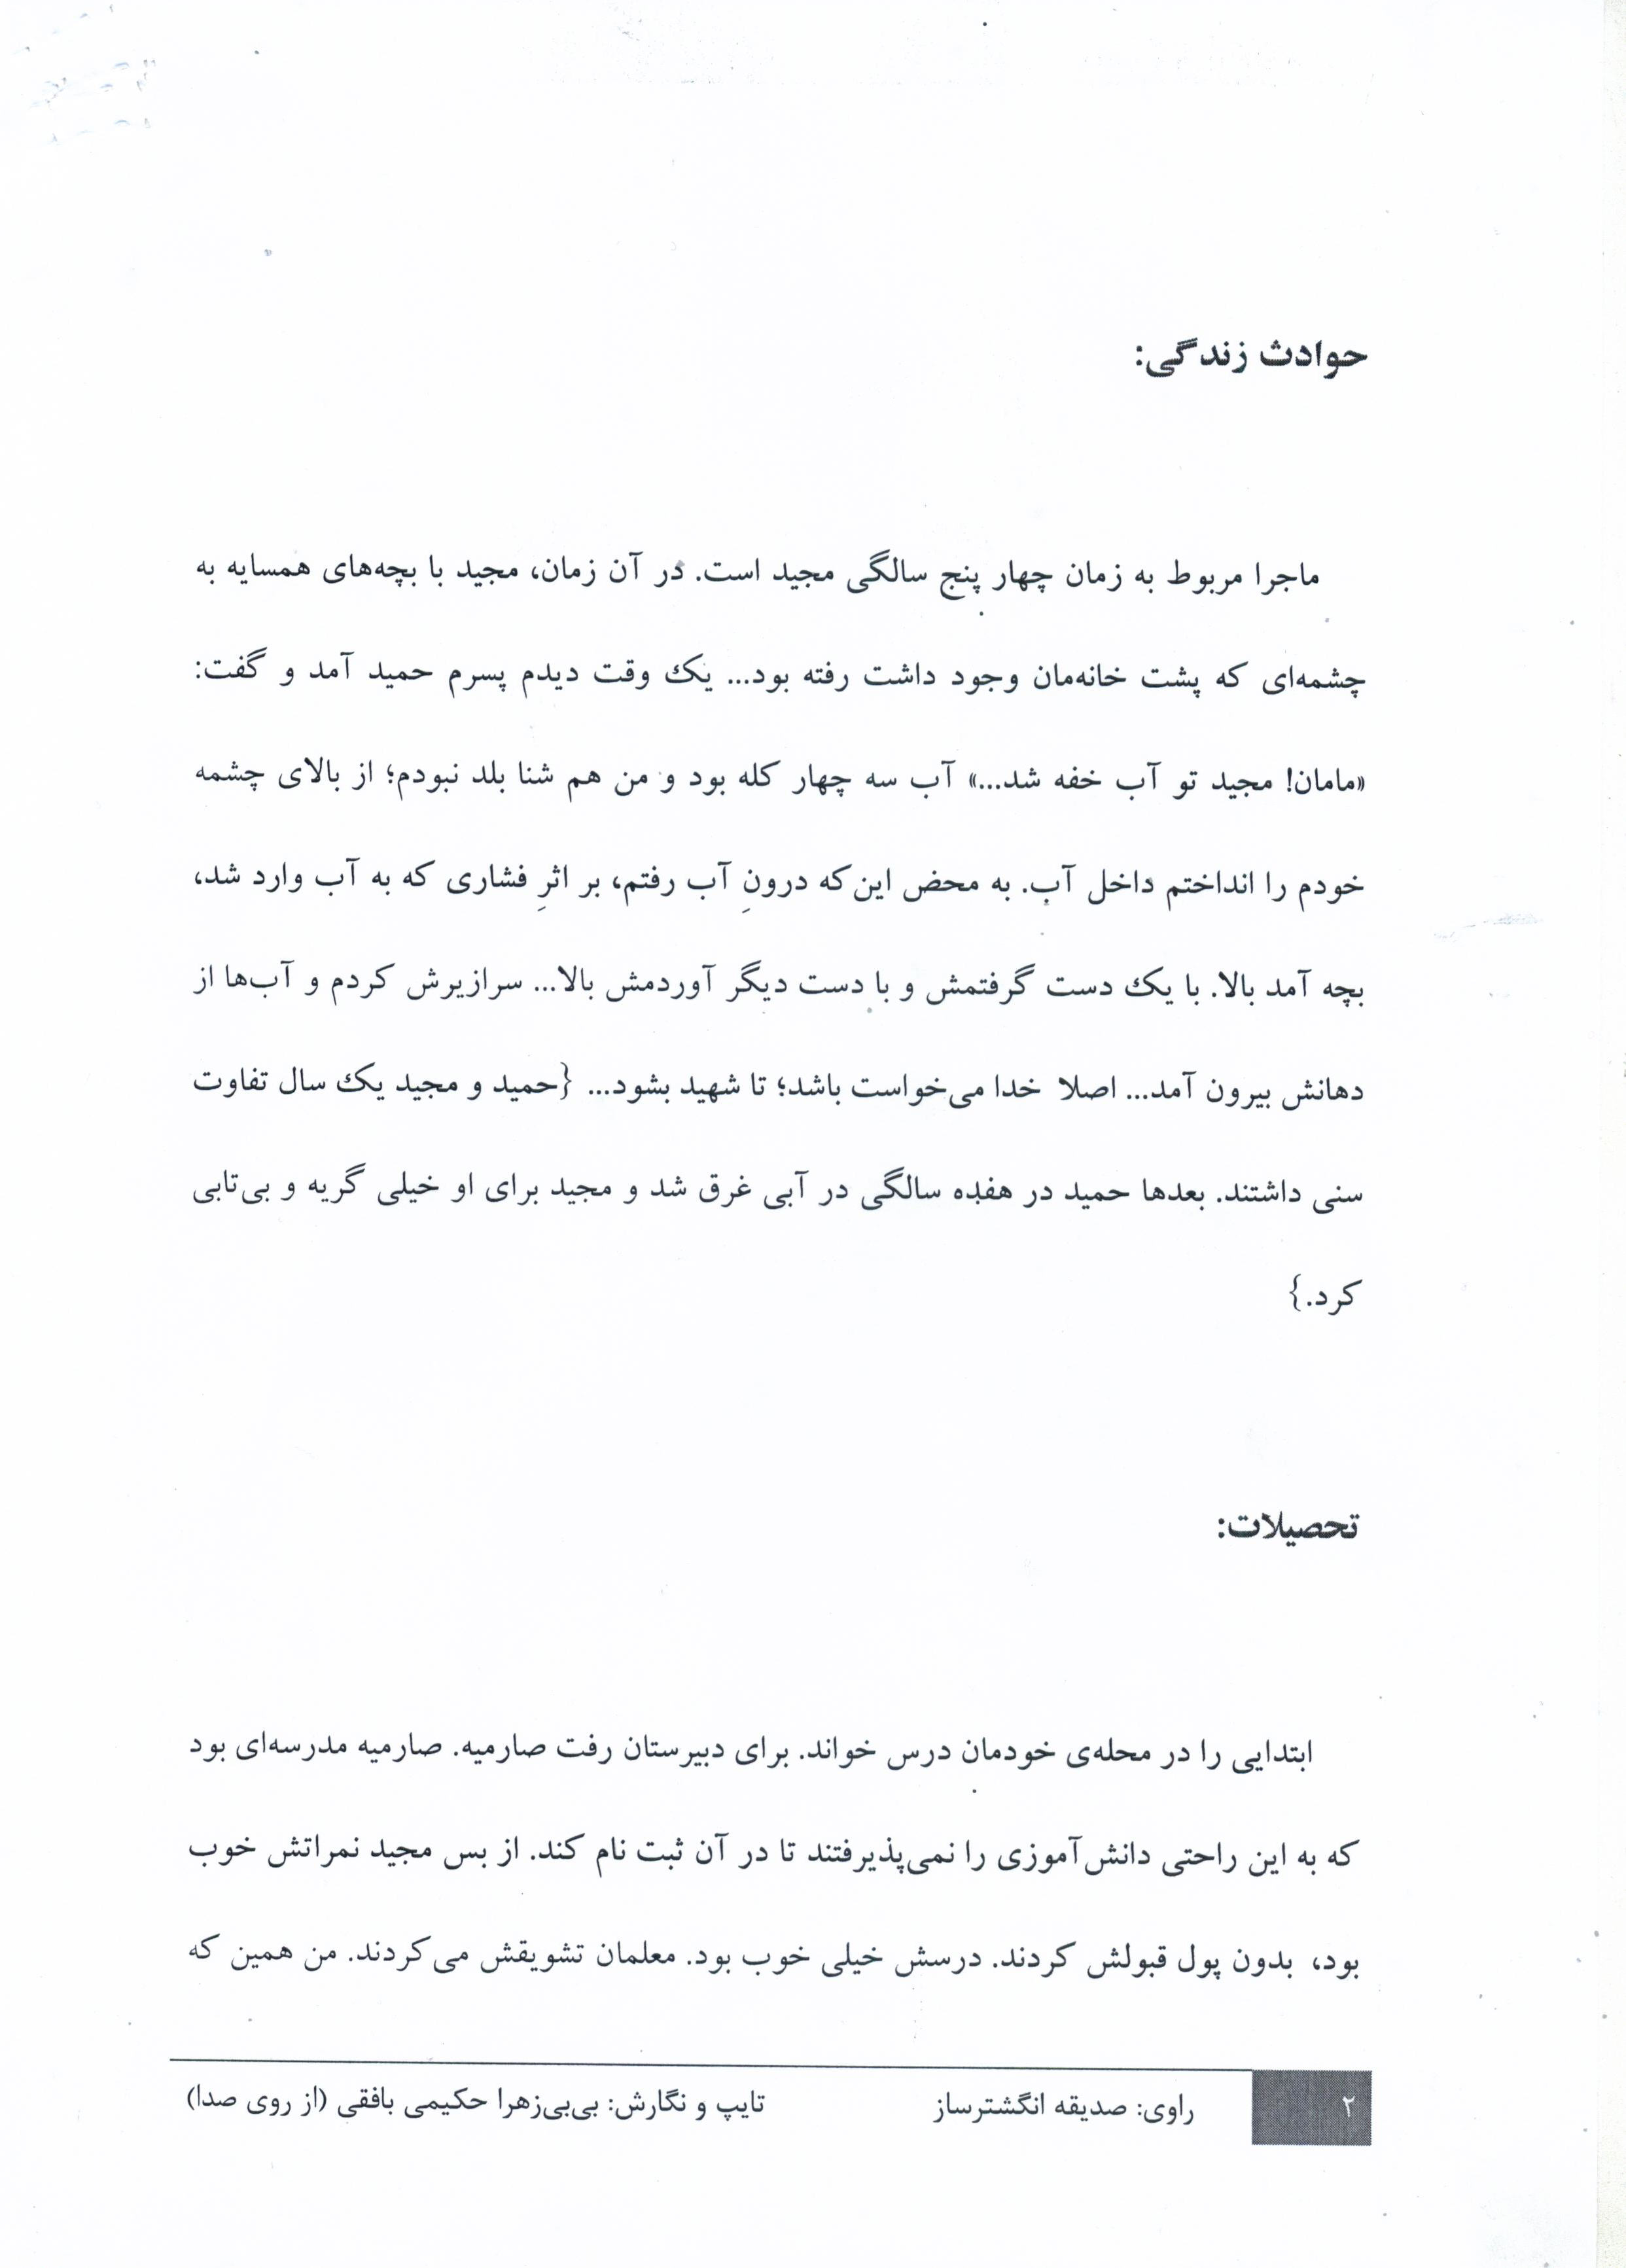 حوادث زندگی:
ماجرا مربوط به زمان چهار پنج سالگی مجید است. در آن زمان، مجید با بچه‌های همسایه به
چشمه‌ای که پشت خانه‌مان وجود داشت رفته بود... یک وقت دیدم پسرم حمید آمد و گفت:
«مامان! مجید تو آب خفه شد...» آب سه چهار کله بود و من هم شنا بلد نبودم؛ از بالای چشمه
خودم را انداختم داخل آب. به محض این‌که درونِ آب رفتم، بر اثرِ فشاری که به آب وارد شد،
بچه آمد بالا. با یک دست گرفتمش و با دست دیگر آوردمش بالا... سرازیرش کردم و آب‌ها از
دهانش بیرون آمد... اصلا خدا می‌خواست باشد؛ تا شهید بشود... {حمید و مجید یک سال تفاوت
سنی داشتند. بعدها حمید در هفده سالگی در آبی غرق شد و مجید برای او خیلی گریه و بی‌تابی
کرد.}
تحصیلات:
ابتدایی را در محله‌ی خودمان درس خواند. برای دبیرستان رفت صارمیه. صارمیه مدرسه‌ای بود
که به این راحتی دانش‌آموزی را نمی‌پذیرفتند تا در آن ثبت نام کند. از بس مجید نمراتش خوب
بود، بدون پول قبولش کردند. درسش خیلی خوب بود. معلمان تشویقش می‌کردند. من همین که
۲ راوی: صدیقه انگشترساز تایپ و نگارش: بی‌بی‌زهرا حکیمی بافقی (از روی صدا)